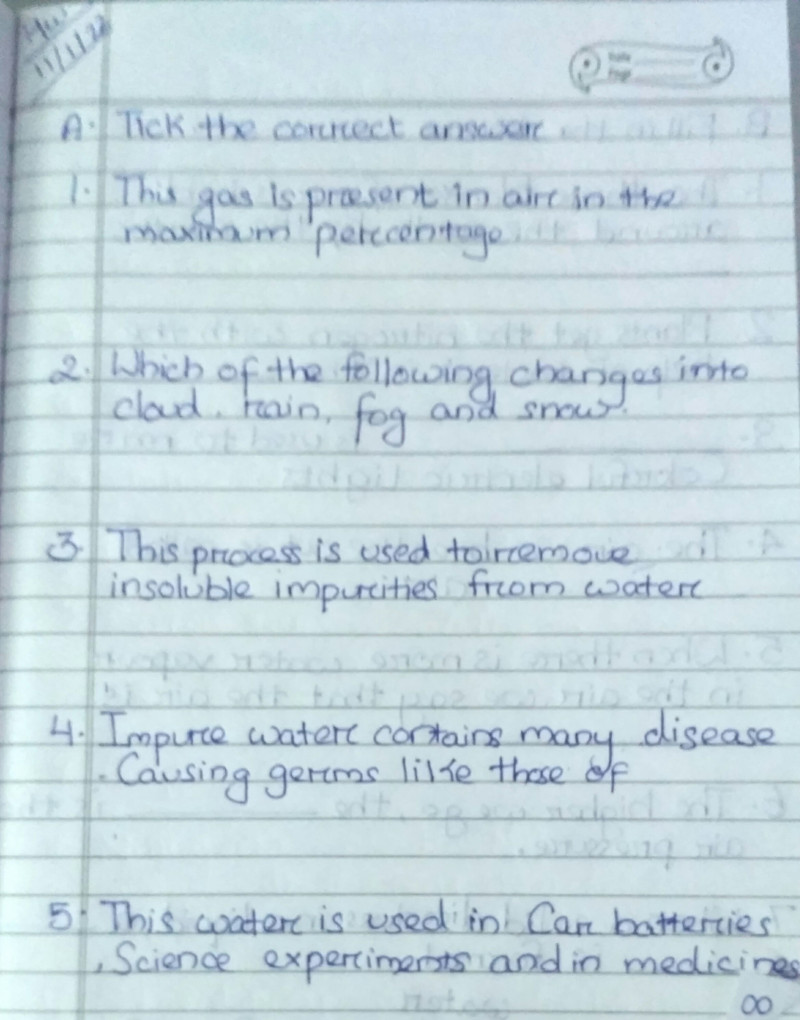 HW
11/1/22
A. Tick the correct answer
1. This gas is present in air in the
maximum percentage
2. Which of the following changes into
cloud, rain, fog and snow.
3. This process is used to remove
insoluble impurities from water
4. Impure water contains many disease
. Causing germs like those of
5. This water is used in Car batteries
, Science experiments and in medicines